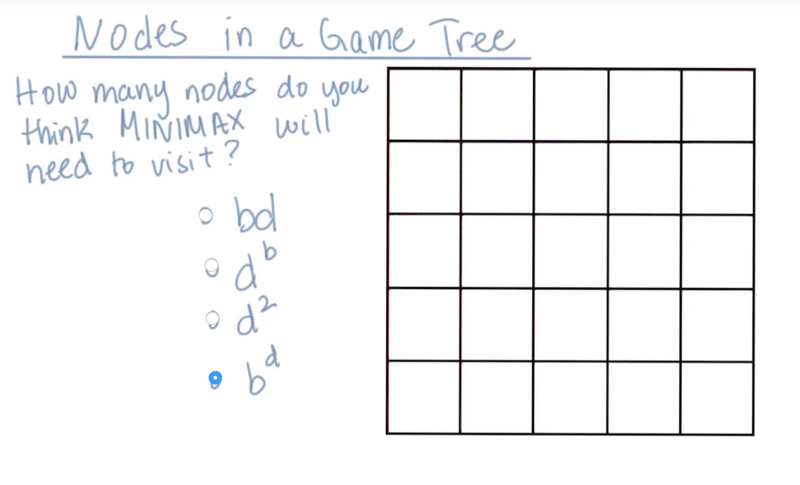 Nodes in a Game Tree
How many nodes do you
think MINIMAX will
need to visit?
bd
d^b
d²
b^d